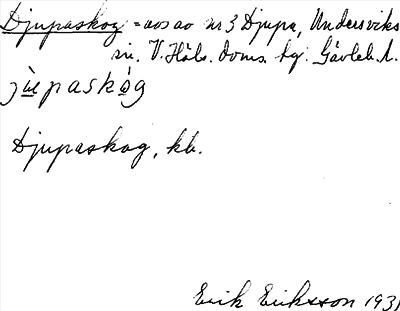 Djupaskog = avs av nr 3 Djupa, Undersviks
sn. V. Häls. doms. hg. Gävleb. l.
jùepaskòg
Djupaskog, kb.
Erik Eriksson 1931